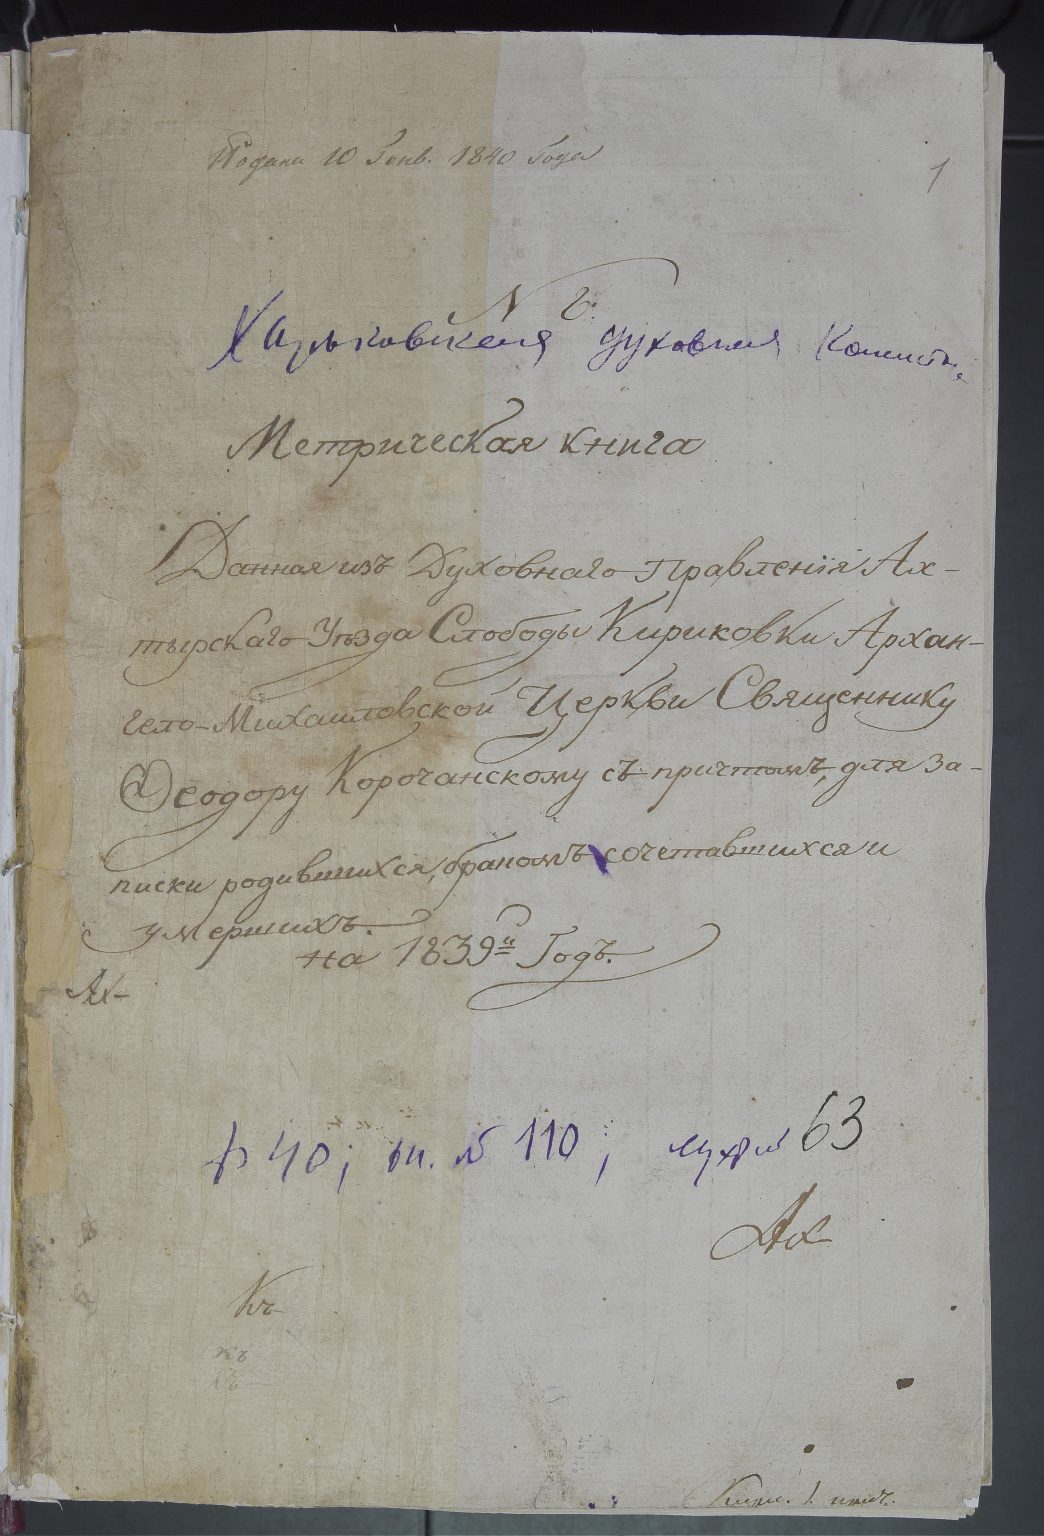 Подана 10 Генв. 1840 Года
1
N 6.
Харьковская духовная
Метрическая книга
Данная изъ Духовнаго Правленія Ах-
тырскаго Уѣзда Слободы Кириковки Архан-
гело-Михаиловской Церкви Священнику
Ѳеодору Корочанскому съ причтомъ, для за-
писки родившихся, бракомъ сочетавшихся и
умершихъ.
на 1839й Годъ.
Ах-
ф 40; оп. № 110; 63
Ах
Къ
къ